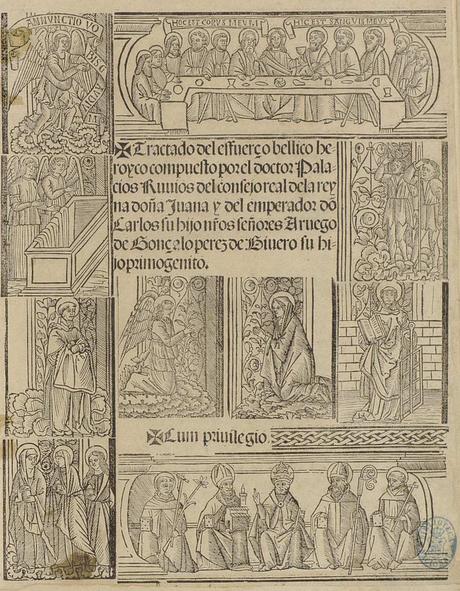 ANNVNCTIO VO
BIS G
HOC EST CORPVS MEVM
HIC EST SANGVIS MEVS
✠Tractado del esfuerço bellico he
royco compuesto por el doctor Pala-
cios Ruuios del consejo real dela rey
na doña Juana y del emperador dõ
Carlos su hijo nr̃os señores A ruego
de Gonçalo perez de Biuero su hi
jo primogenito.
✠Cum priuilegio.